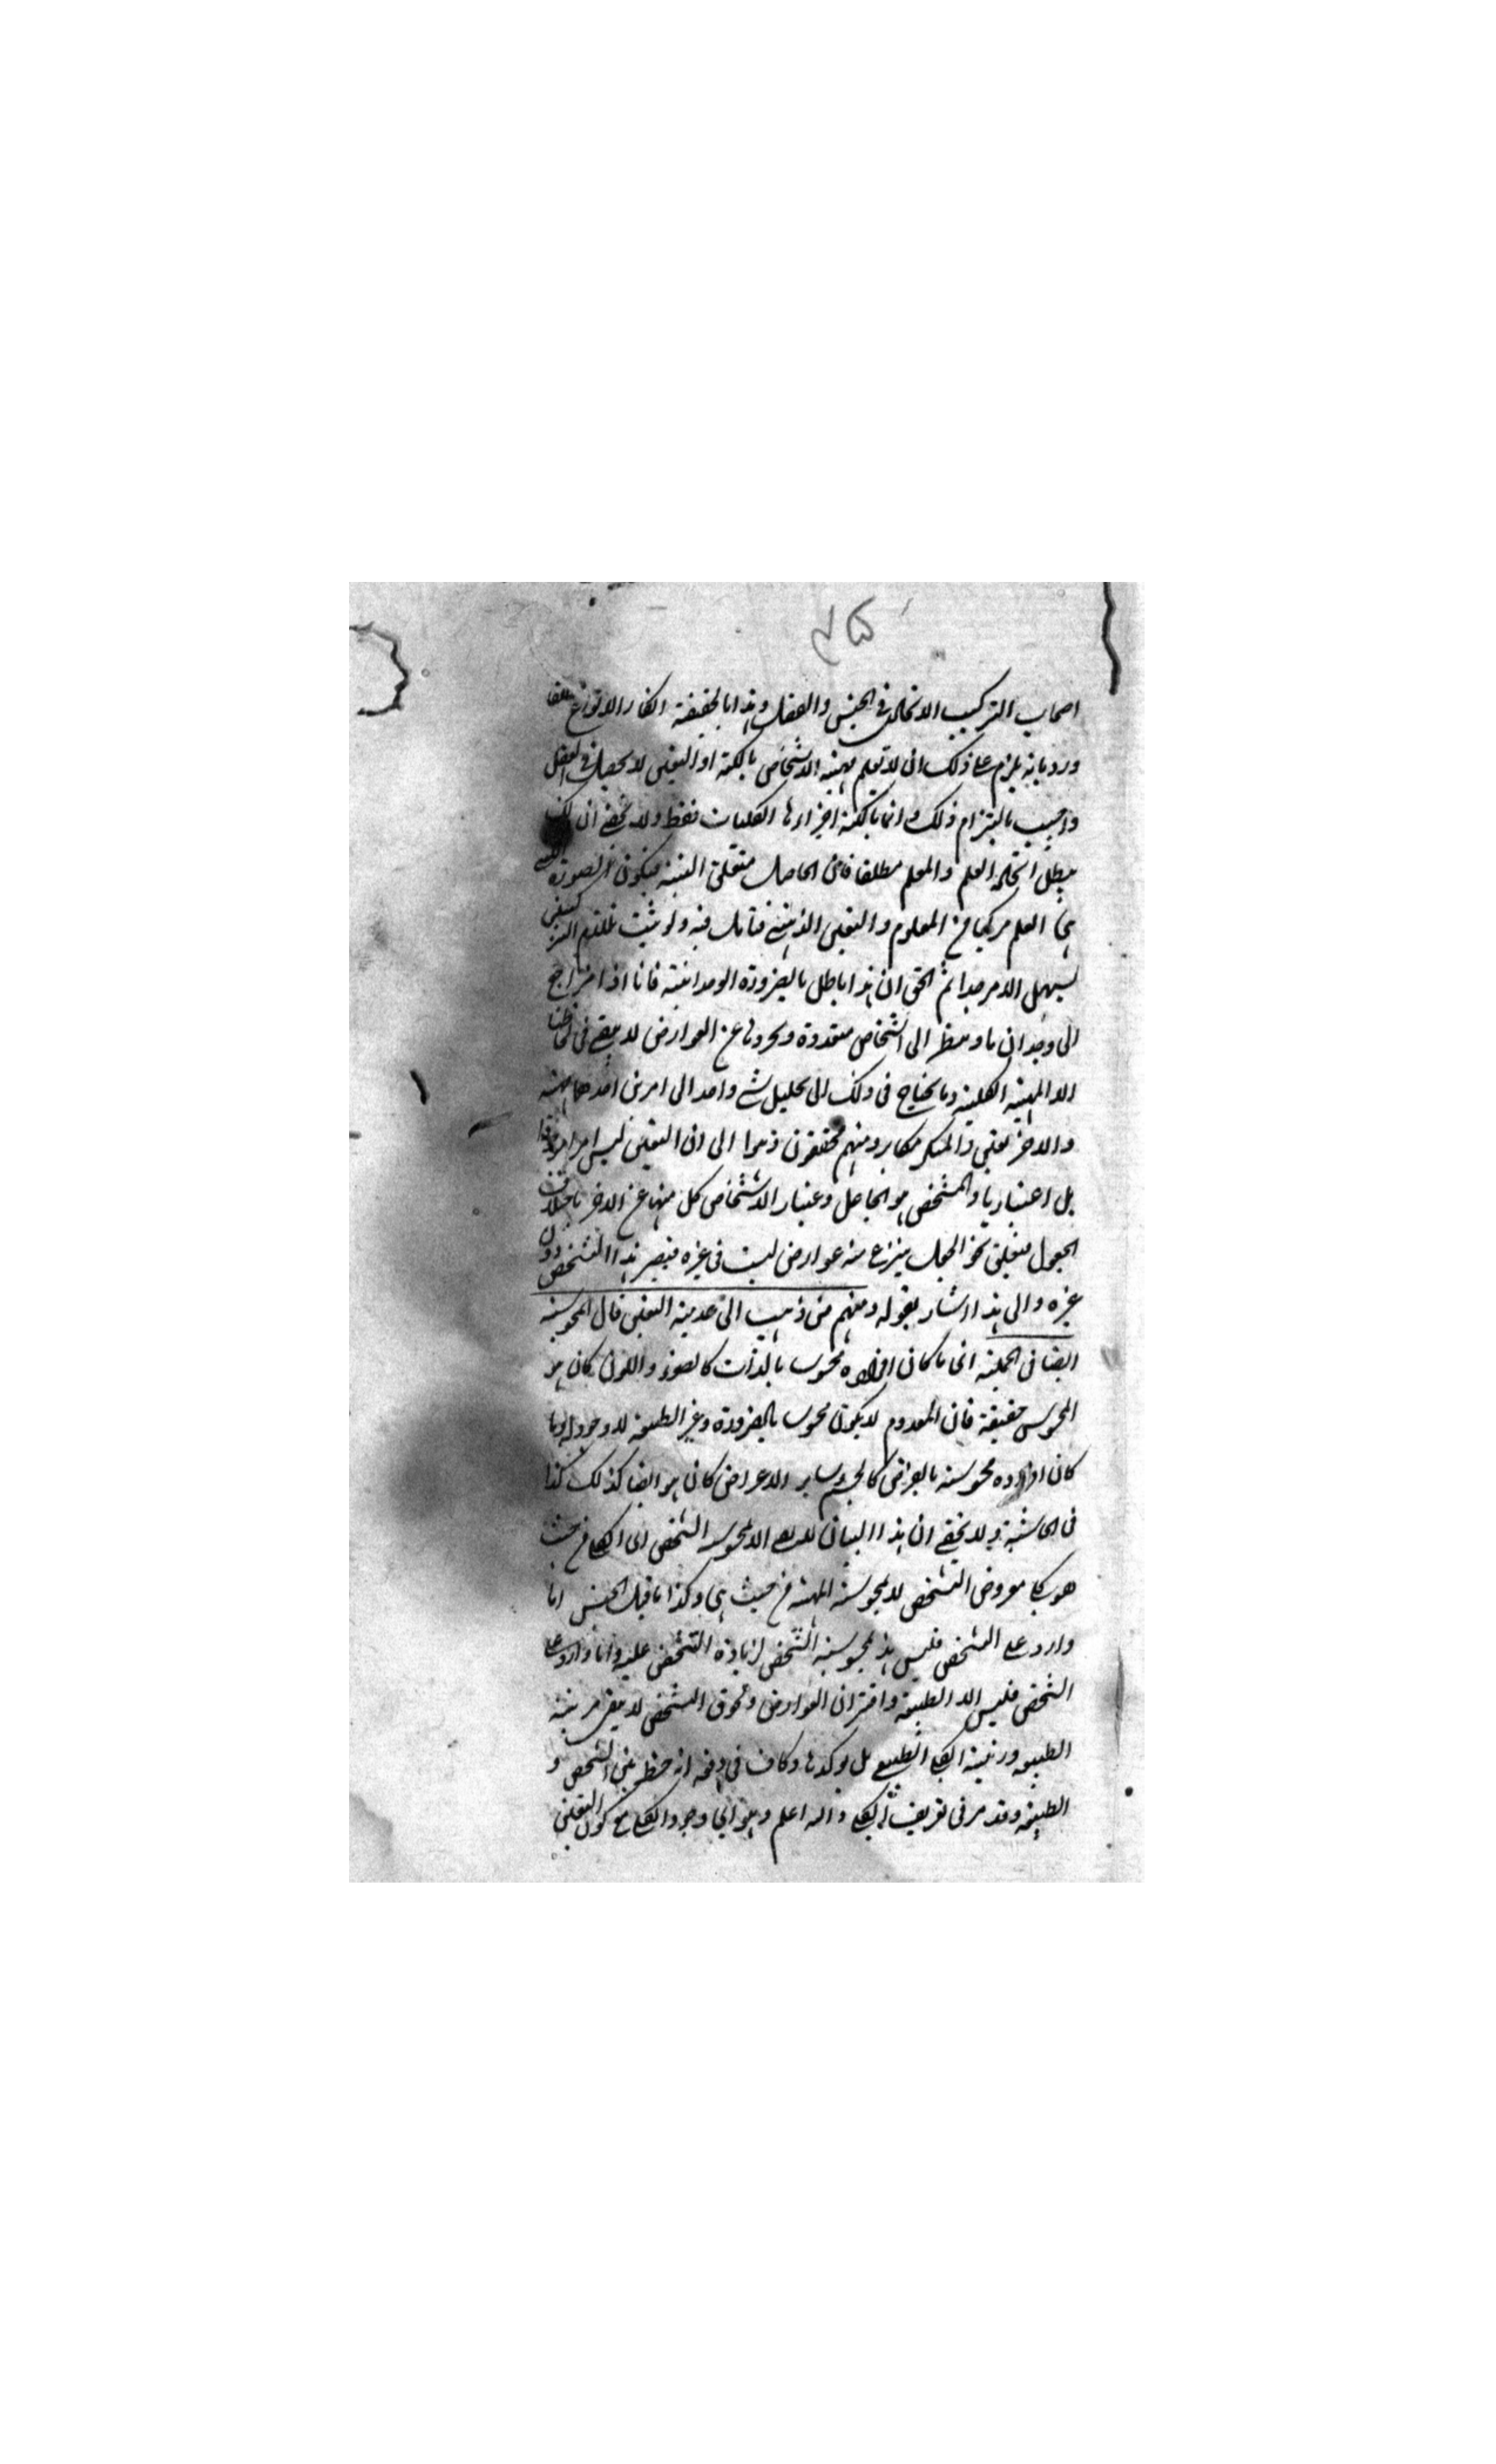 ٤٥
اصحاب التركيب الاتحادى فى الجنس والفصل وهذا بالحقيقة انكار الانواع مطلقا
ورد بانه يلزم على ذلك ان لا تعلم مهية الاشخاص بالكنه او التعين لا يحصل فى العقل
واجيب بالتزام ذلك وانما بالكنه اجزاءها الكليات فقط ولا يخفى ان ذلك
يبطل اتحاد العلم والمعلوم مطلقا فان الحاصل متعلق فيكون الصورة
هى العلم مركبا من المعلوم والتعين الذهنى فتامل فيه ولو ثبت تلازم
يسهل الامر جدا ثم الحق ان هذا باطل بالضرورة الوجدانية فانا اذا نراجع
الى وجداننا وننظر الى اشخاص متعددة ونجردها عن العوارض لا يبقى فى لحاظنا
الا المهية الكلية وما نحتاج فى ذلك الى تحليل شئ واحد الى امرين احدهما مهية
والاخر تعين والمنكر مكابر ومنهم محققون ذهبوا الى ان التعين ليس امرا
بل اعتباريا والمشخص هو الجاعل وامتياز الاشخاص كل منها عن الاخر باختلاف
المجعول متعلق نحو الجعل ينتزع منه عوارض ليست فى غيره فيصير هذا الشخص دون
غيره والى هذا اشار بقوله ومنهم من ذهب الى عدمية التعين قال المحسوسية
ايضا فى الجملة اى ما كان افراده محسوسا بالذات كالضوء واللون كان هو
المحسوس حقيقة فان المعدوم لا يكون محسوسا بالضرورة وغير الطبيعة لا وجود له وما
كان افراده محسوسة بالعرض كالجسم وساير الاعراض كان هو ايضا كذلك كذا
فى الحاشية ولا يخفى ان هذا البيان الا لمحسوسية الشخص اى الكلى من حيث
هو كلى معروض التشخص لا لمحسوسية المهية من حيث هى وكذا ما قيل الحس اما
وارد على المشخص فليس هذا محسوسية الشخص لزيادة التشخص عليه واما وارد على
الشخص فليس الا الطبيعة واقتران العوارض ولحوق التشخص لا يغير مرتبة
الطبيعة ورتبة الكلى الطبيعى بل يوكدها وكاف فى دفعه انه خلط بين الشخص و
الطبيعة وقد مر فى تعريف الكلى والله اعلم وهو اى وجود الكلى مع كون التعين